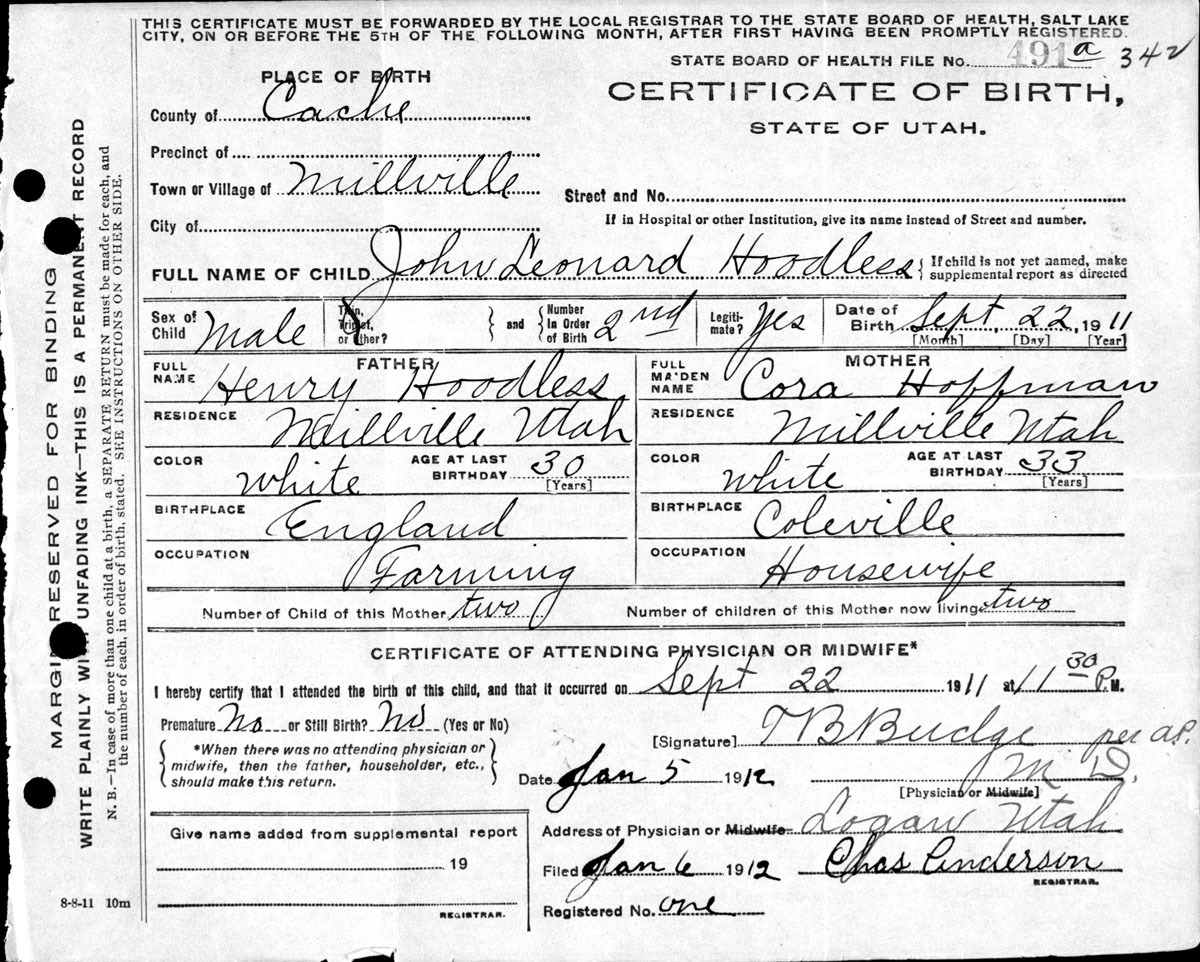 THIS CERTIFICATE MUST BE FORWARDED BY THE LOCAL REGISTRAR TO THE STATE BOARD OF HEALTH, SALT LAKE
CITY, ON OR BEFORE THE 5TH OF THE FOLLOWING MONTH, AFTER FIRST HAVING BEEN PROMPTLY REGISTERED.
STATE BOARD OF HEALTH FILE No. 491 a 342
PLACE OF BIRTH
CERTIFICATE OF BIRTH,
STATE OF UTAH.
County of Cache
Precinct of
Town or Village of Millville
Street and No.
City of
If in Hospital or other Institution, give its name instead of Street and number.
FULL NAME OF CHILD John Leonard Hoodless { If child is not yet named, make
supplemental report as directed
Sex of Child Male Twin, Triplet, or Other? } and { Number In Order of Birth 2nd Legiti-mate? Yes Date of Birth Sept 22, 1911
[Month] [Day] [Year]
FATHER MOTHER
FULL NAME Henry Hoodless FULL MAIDEN NAME Cora Hoffman
RESIDENCE Millville Utah RESIDENCE Millville Utah
COLOR White AGE AT LAST BIRTHDAY 30 [Years] COLOR White AGE AT LAST BIRTHDAY 33 [Years]
BIRTHPLACE England BIRTHPLACE Coleville
OCCUPATION Farming OCCUPATION Housewife
Number of Child of this Mother two Number of children of this Mother now living two
CERTIFICATE OF ATTENDING PHYSICIAN OR MIDWIFE*
I hereby certify that I attended the birth of this child, and that it occurred on Sept 22 1911 at 11 30 P.M.
Premature No or Still Birth? No (Yes or No)
{ *When there was no attending physician or
midwife, then the father, householder, etc.,
should make this return. }
[Signature] T B Budge per a.P.
M D.
Date Jan 5 1912
[Physician or Midwife]
Give name added from supplemental report
19
REGISTRAR.
Address of Physician or Midwife Logan Utah
Filed Jan 6 1912 Chas Anderson
REGISTRAR.
Registered No. one
8-8-11 10m
MARGIN RESERVED FOR BINDING
WRITE PLAINLY WITH UNFADING INK—THIS IS A PERMANENT RECORD
N. B.—In case of more than one child at a birth, a SEPARATE RETURN must be made for each, and
the number of each, in order of birth, stated. SEE INSTRUCTIONS ON OTHER SIDE.